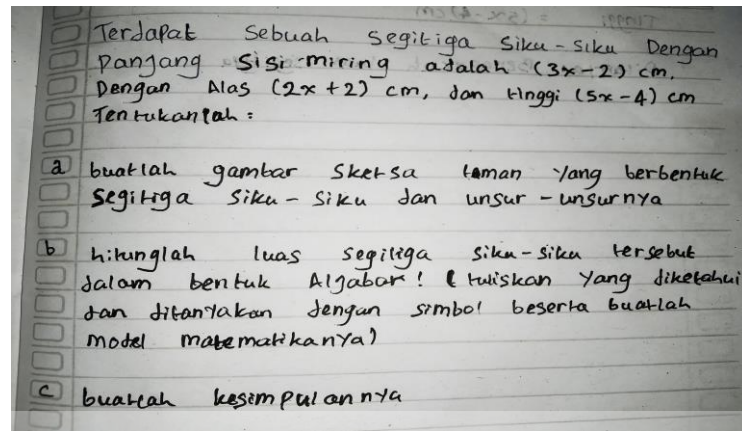 Terdapat sebuah segitiga siku-siku Dengan
Panjang sisi miring adalah (3x-2) cm,
Dengan Alas (2x+2) cm, dan tinggi (5x-4) cm
Tentukanlah :
a buatlah gambar sketsa taman yang berbentuk
segitiga siku-siku dan unsur-unsurnya
b hitunglah luas segitiga siku-siku tersebut
dalam bentuk Aljabar! (tuliskan yang diketahui
dan ditanyakan dengan simbol beserta buatlah
model matematikanya)
c buatlah kesimpulannya